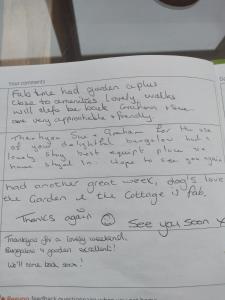 Your comments
Fab time had garden a plus
close to amenities lovely walks
will defo be back Graham + Sue
are very approachable + friendly.
Thankyou Sue + Graham for the use
of your delightful bungalow has a
lovely stay best equipt place we
have stayed in. Hope to see you again
had another great week, dog's love
the Garden & the Cottage is fab.
Thanks again
See you soon x
Thankyou for a lovely weekend.
Bungalow & garden excellent!
We'll come back soon!